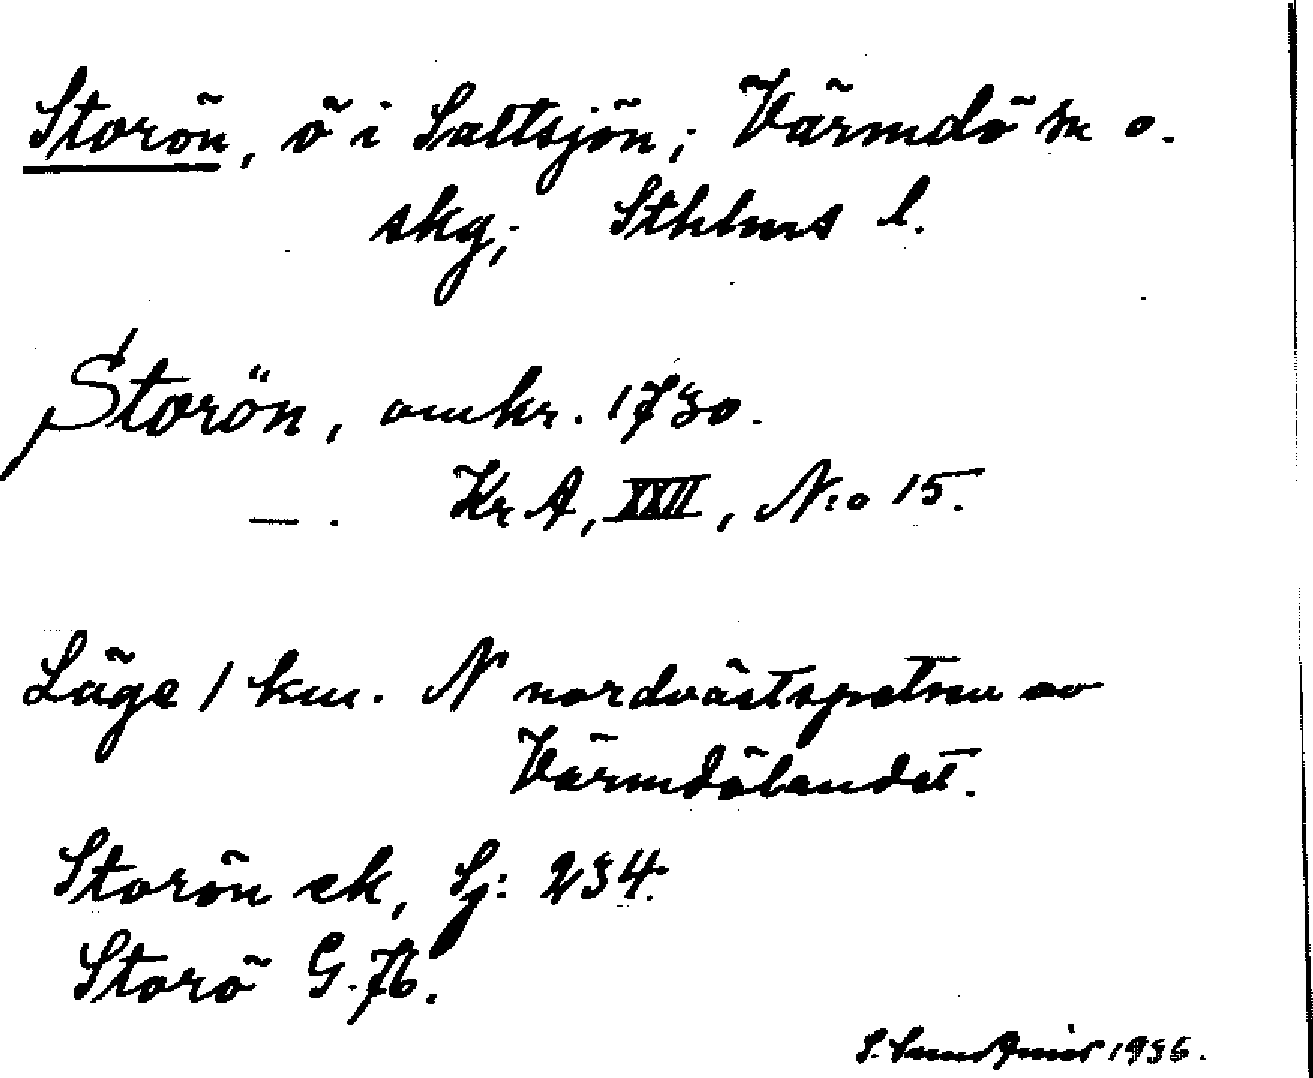 Storön, ö i Saltsjön; Värmdö sn o.
skg; Sthlms l.
Storön, omkr. 1730.
— . Kr A, XXII, N:o 15.
Läge 1 km. N nordvästspetsen av
Värmdölandet.
Storön ek, Sj: 234.
Storö G. 76.
S. 1936.